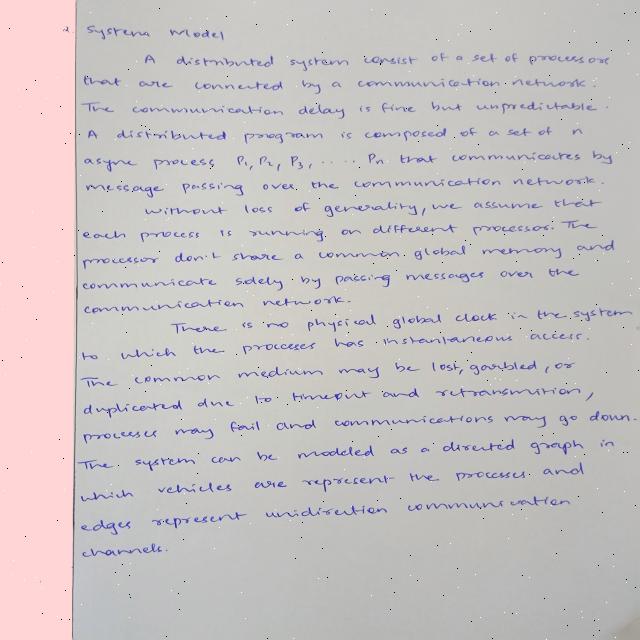 2. System Model
A distributed system consist of a set of processors
that are connected by a communication network.
The communication delay is fine but unpredictable.
A distributed program is composed of a set of n
async process P1, P2, P3, ..... Pn that communicates by
message passing over the communication network.
Without loss of generality, we assume that
each process is running on different processor. The
processor don't share a common global memory and
communicate solely by passing messages over the
communication network.
There is no physical global clock in the system
to which the processes has instantaneous access.
The common medium may be lost, garbled, or
duplicated due to timeout and retransmition,
processes may fail and communications may go down.
The system can be modeled as a directed graph in
which vehicles are represent the processes and
edges represent unidirection communication
channels.